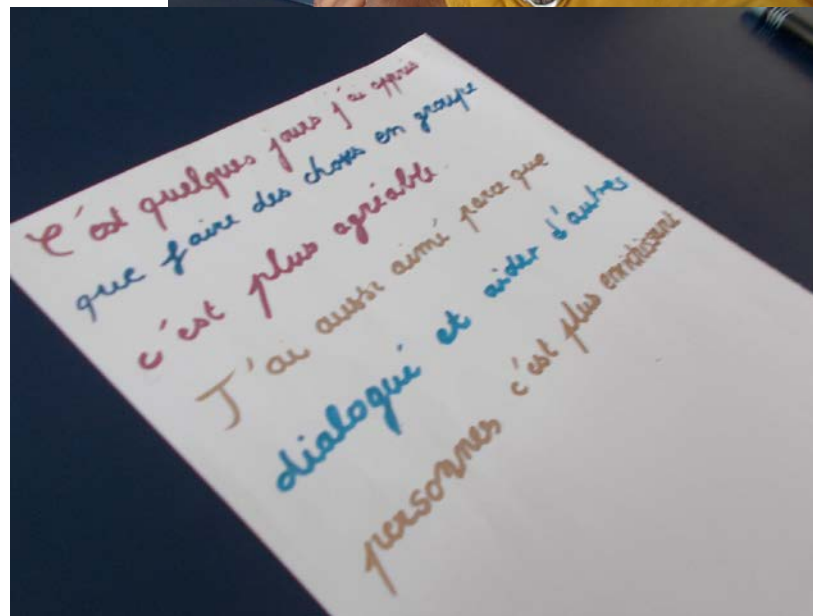 C'est quelques jours j'ai appris
que faire des choses en groupe
c'est plus agréable.
J'ai aussi aimé parce que
dialogué et aider d'autres
personnes c'est plus enrichissant